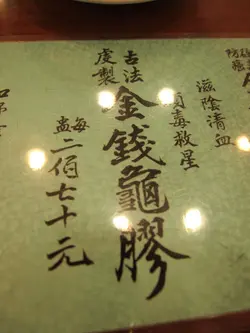 滋陰清血
毒救星
古法
虔製
金錢龜膠
每盅
二佰七十元